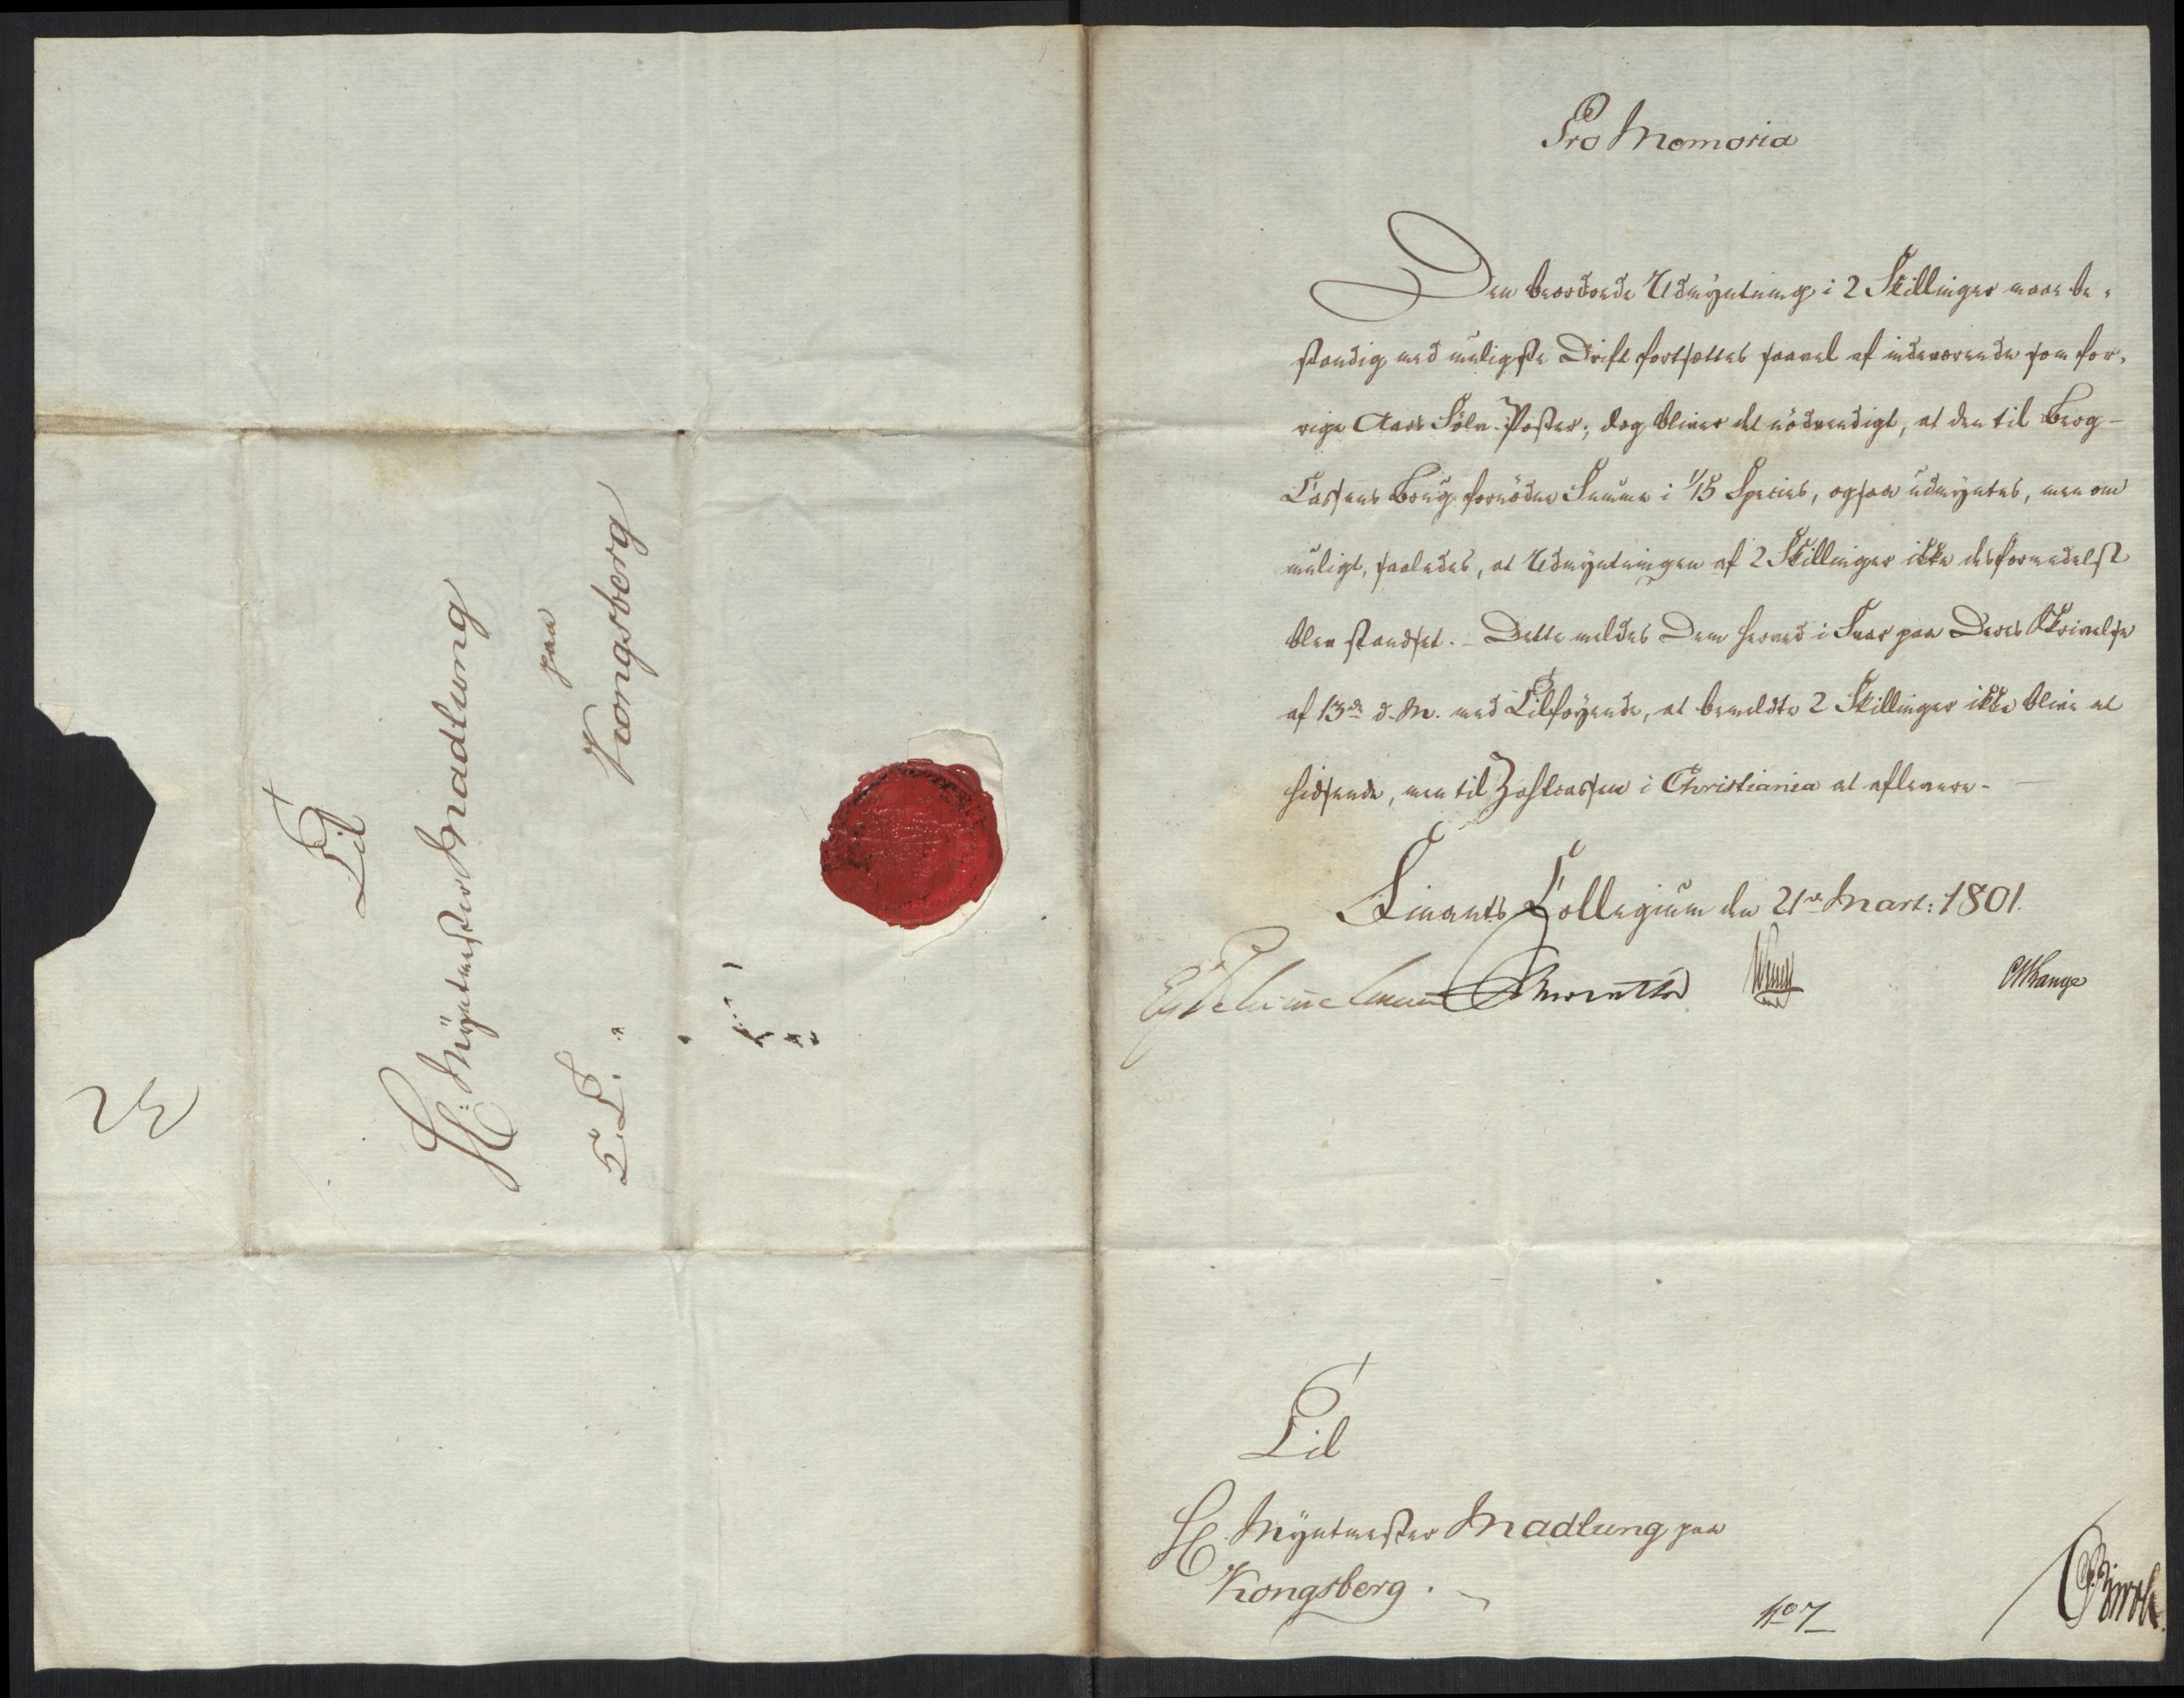 Til
H: Myntmester Madlung
paa
T. T. Kongsberg
Pro Memoria
Den beordrede Udmyntning i 2 Skillinger maae be-
standig med muligste Drift fortsættes saavel af indeværende som for-
rige Aars Sölv-Poster; dog bliver det nödvendigt, at den til Berg-
Cassens Brug fornödne Summa i 1/15 Species, ogsaa udmyntes, men om
muligt, saaledes, at Udmyntningen af 2 Skillinger ikke desformedelst
blev standset. – Dette meldes Dem herved i Svar paa Deres Skrivelse
af 13de d. M. med Tilföyende, at bemeldte 2 Skillinger ikke blive at
hidsende, men til Zahlcassen i Christiania at aflevere. –
Finants Collegium den 21de Mart: 1801.
Schimmelmann
Til
H. Myntmester Madlung paa
Kongsberg.
No 7